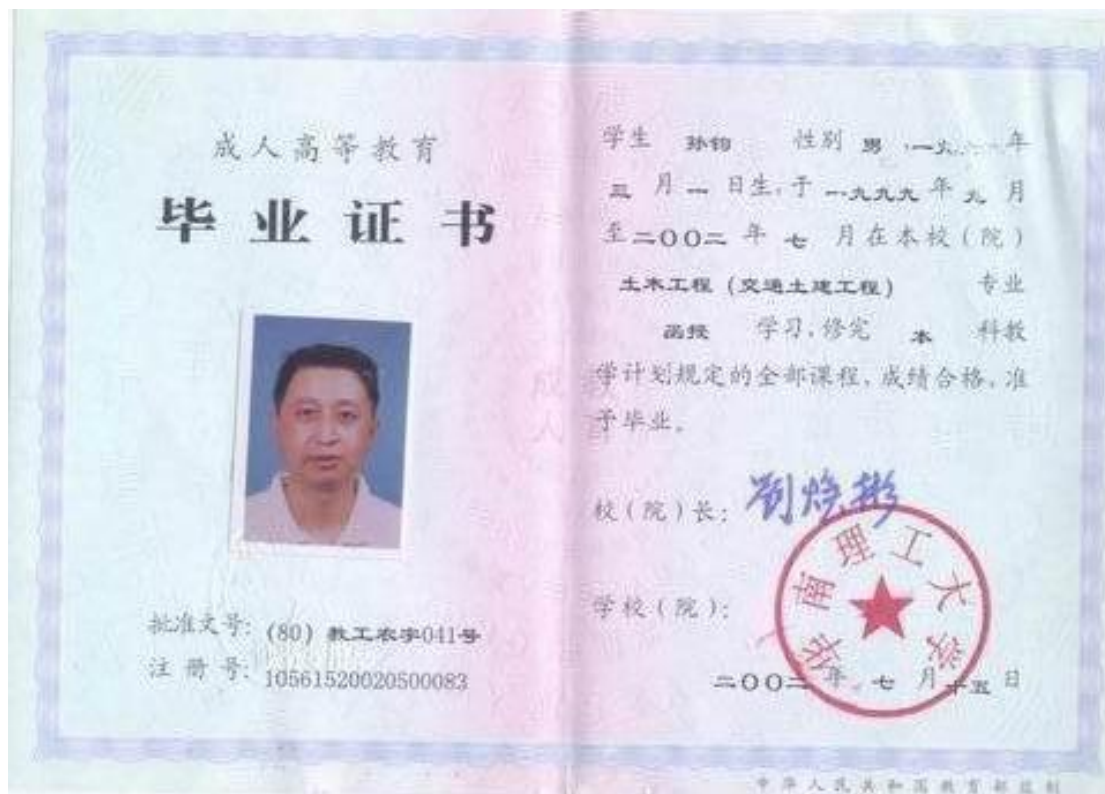 成人高等教育
毕业证书
批准文号: (80) 教工农字041号
注册号: 10561520020500083
学生 孙钧 性别 男 ,一九 年
三 月 一 日生,于 一九九九 年 九 月
至 二〇〇二 年 七 月在本校(院)
土木工程 (交通土建工程) 专业
函授 学习,修完 本 科教
学计划规定的全部课程,成绩合格,准
予毕业。
校(院)长: 刘焕彬
学校(院):
华南理工大学
二〇〇二 年 七 月 十五 日
中华人民共和国教育部监制